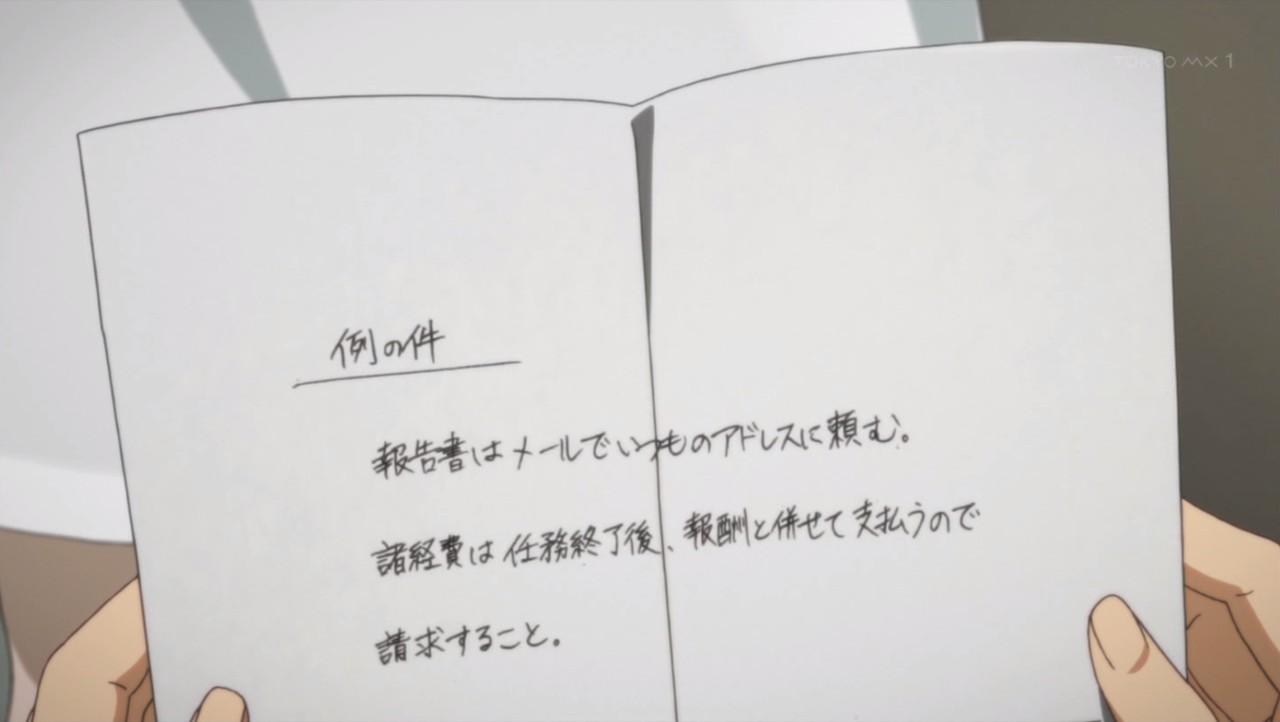 TOKYO MX 1
例の件
報告書はメールでいつものアドレスに頼む。
諸経費は任務終了後、報酬と併せて支払うので
請求すること。